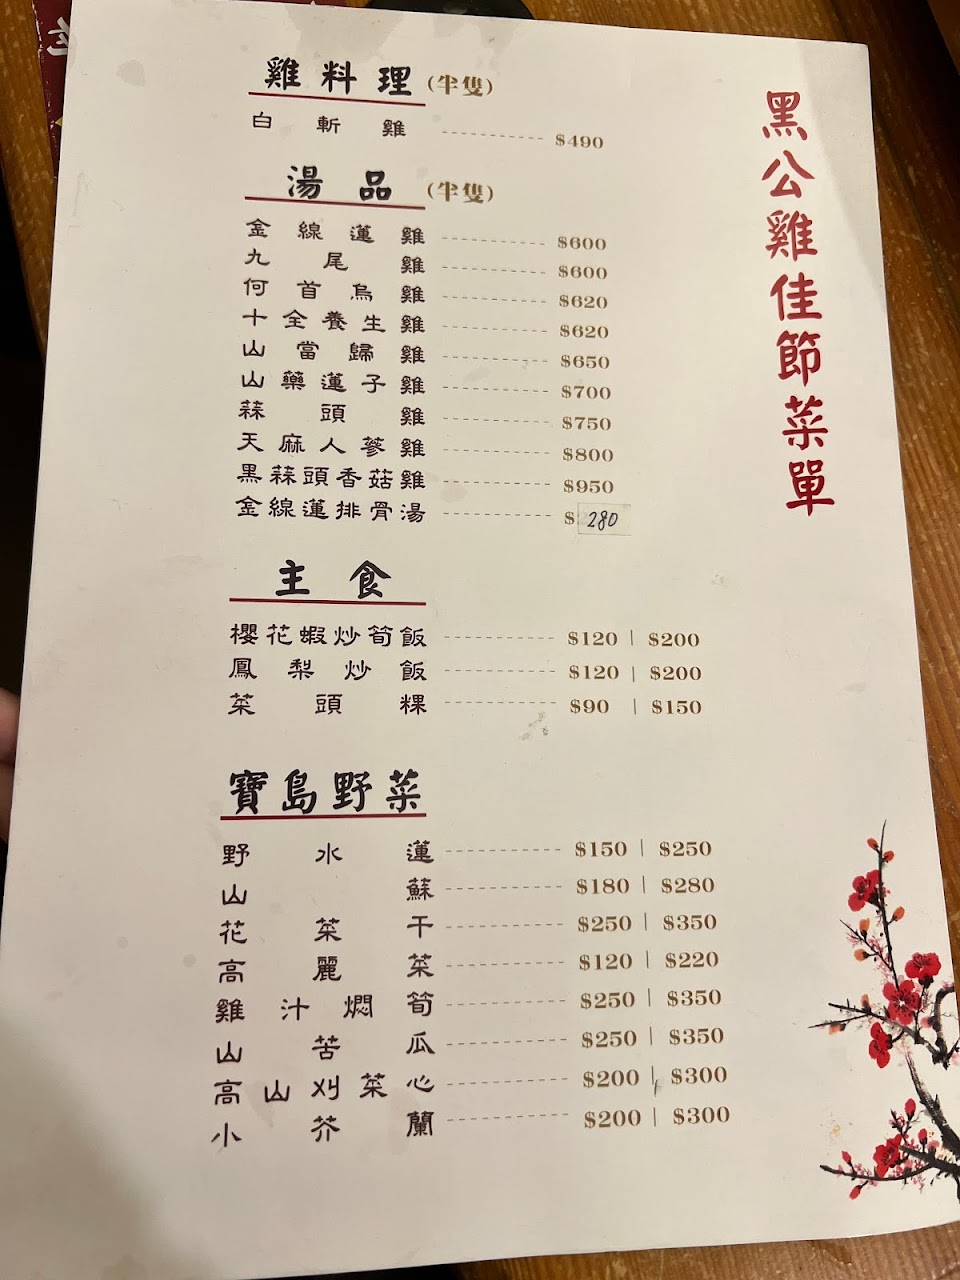 黑公雞佳節菜單
雞料理(半隻)
白斬雞 $490
湯品(半隻)
金線蓮雞 $600
九尾雞 $600
何首烏雞 $620
十全養生雞 $620
山當歸雞 $650
山藥蓮子雞 $700
蒜頭雞 $750
天麻人蔘雞 $800
黑蒜頭香菇雞 $950
金線蓮排骨湯 $280
主食
櫻花蝦炒筍飯 $120 | $200
鳳梨炒飯 $120 | $200
菜頭粿 $90 | $150
寶島野菜
野水蓮 $150 | $250
山蘇 $180 | $280
花菜干 $250 | $350
高麗菜 $120 | $220
雞汁燜筍 $250 | $350
山苦瓜 $250 | $350
高山刈菜心 $200 | $300
小芥蘭 $200 | $300